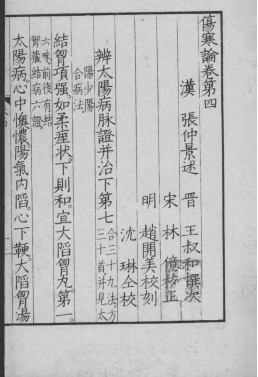 傷寒論卷第四
漢　張仲景述　晉　王叔和撰次
宋　林　億校正
明　趙開美校刻
沈　琳仝校
辨太陽病脉證并治下第七
合三十九法方
三十首并見太
陽少陽
合病法
結胷項强如柔痓狀下則和宜大陷胷丸第一
六味前後有結
胷藏結病六證
太陽病心中懊憹陽氣內陷心下鞕大陷胷湯